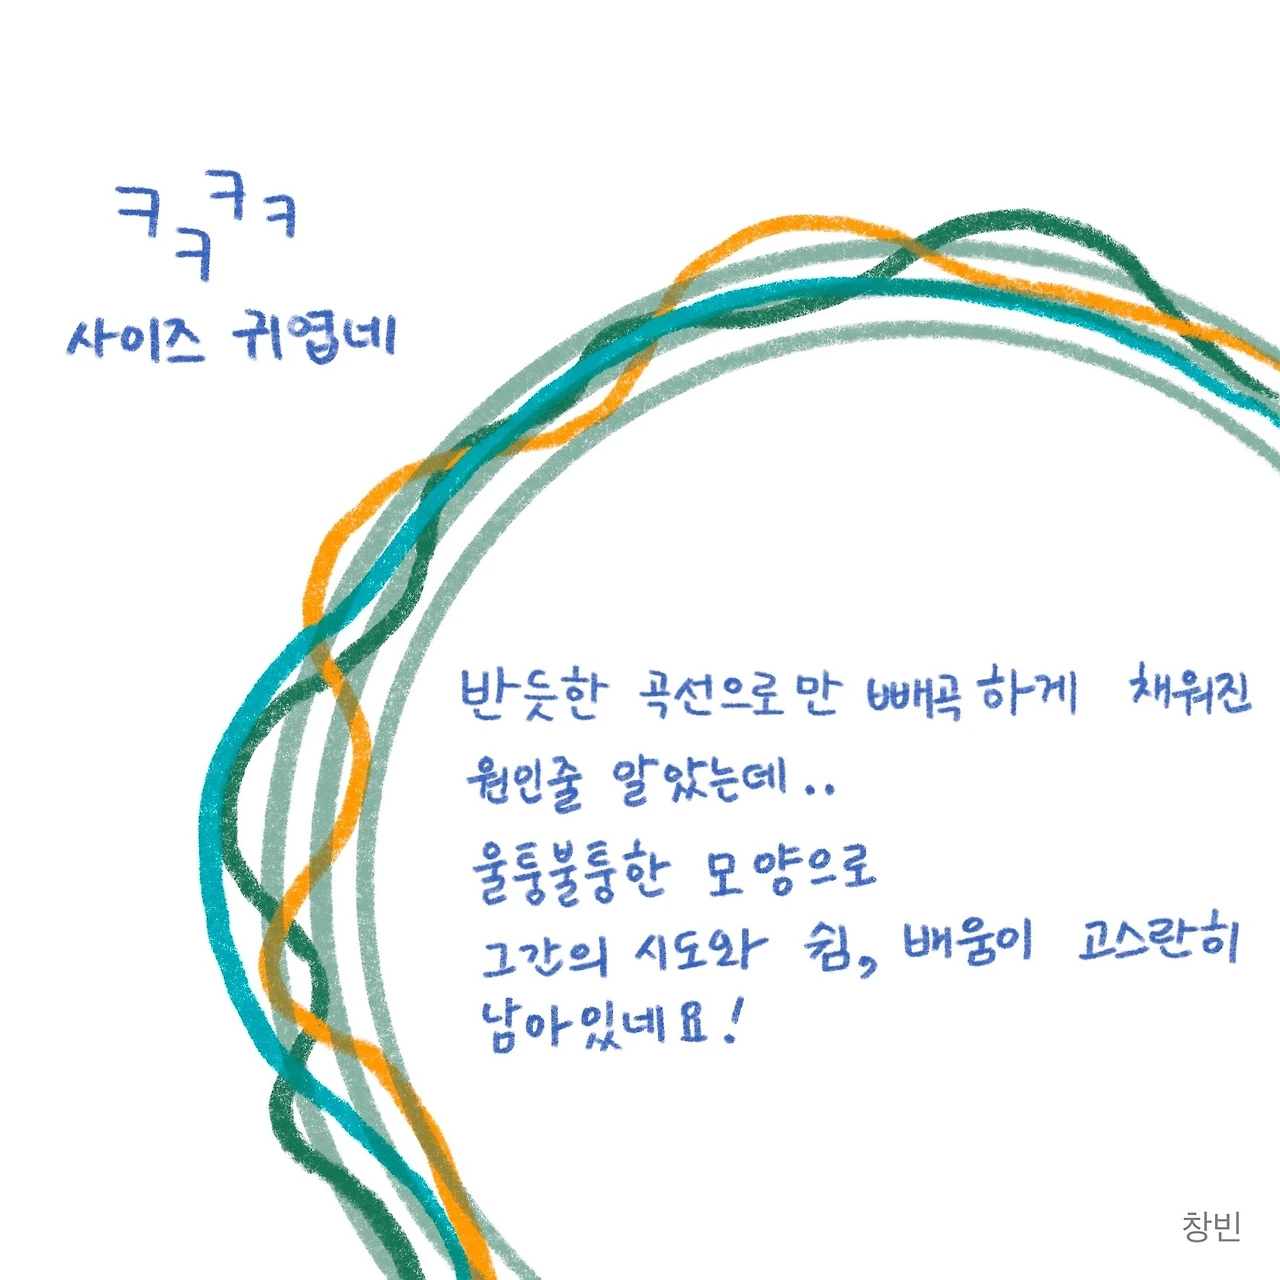 ㅋㅋㅋㅋ
사이즈 귀엽네
반듯한 곡선으로만 빼곡하게 채워진
원인줄 알았는데..
울퉁불퉁한 모양으로
그간의 시도와 쉼, 배움이 고스란히
남아있네요!
창빈